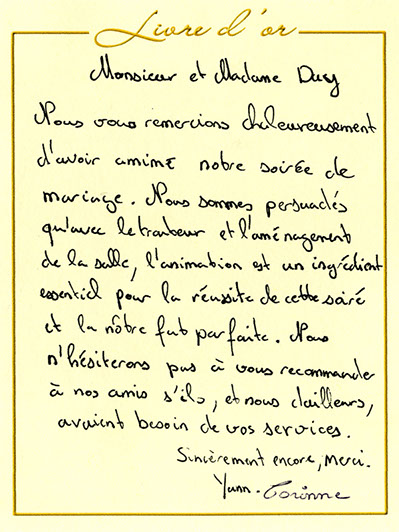 Livre d'or
Monsieur et Madame Dusy
Nous vous remercions chaleureusement
d'avoir amimé notre soirée de
mariage. Nous sommes persuadés
qu'avec le traiteur et l'aménagement
de la salle, l'animation est un ingrédient
essentiel pour la réussite de cette soiré
et la nôtre fut parfaite. Nous
n'hésiterons pas à vous recommander
à nos amis s'ils, et nous d'ailleurs,
avaient besoin de vos services.
Sincèrement encore, Merci.
Yann - Corinne